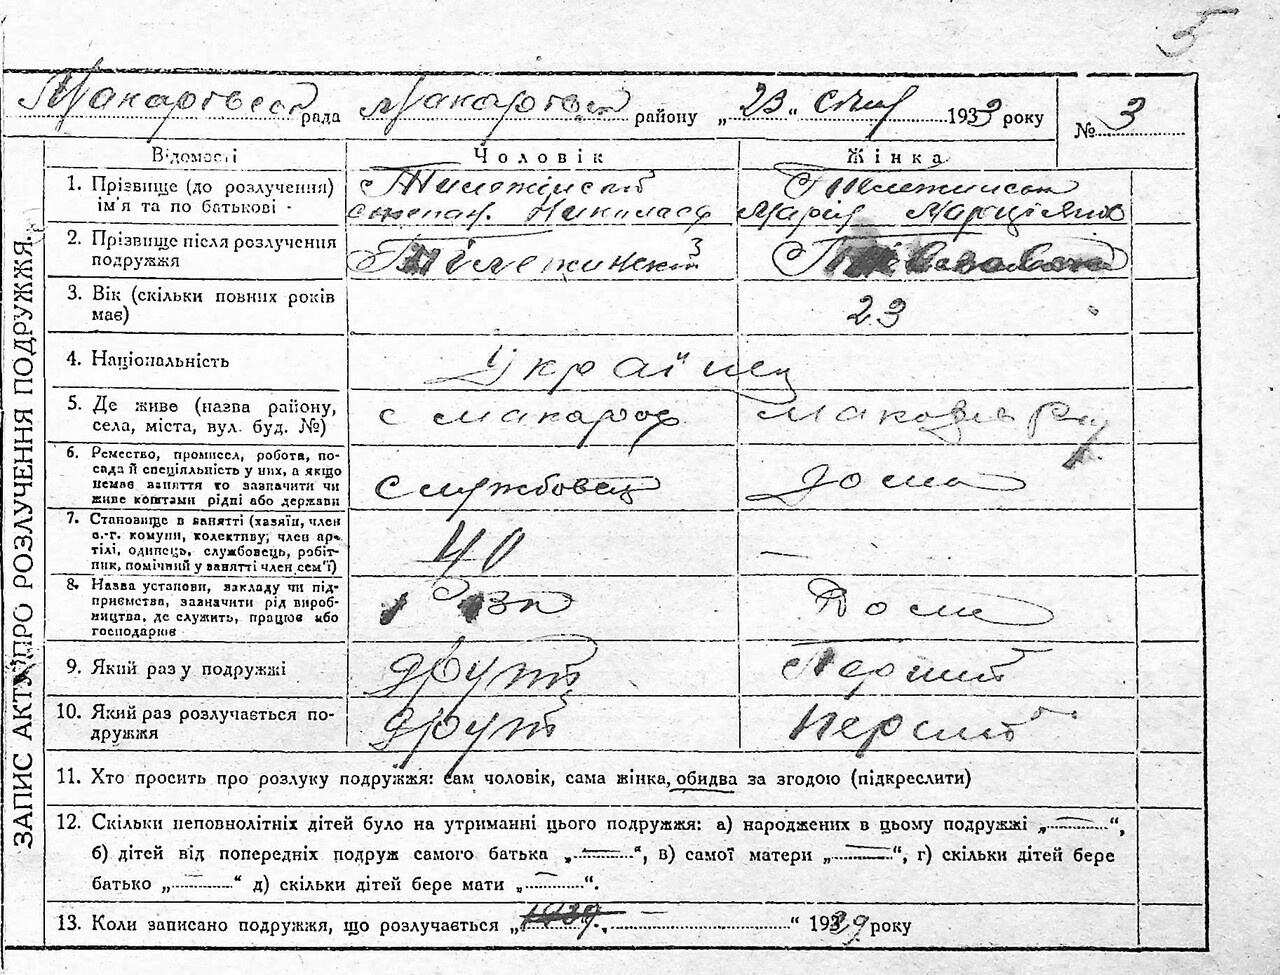 5
Макарівська рада Макарівськ району „23" січня 1933 року № 3
Відомості Чоловік Жінка
1. Прізвище (до розлучення)
ім'я та по батькові -
Степан Николаєв Марія
2. Прізвище після розлучення
подружжя
Тілежинский
3. Вік (скільки повних років
має)
23
4. Національність
Українці
5. Де живе (назва району,
села, міста, вул. буд. №)
с Макаров
6. Ремество, промисел, робота, по-
сада й спеціяльність у них, а якщо
немає заняття то зазначити чи
живе коштами рідні або держави
службовець дома
7. Становище в занятті (хазяїн, член
с.-г. комуни, колективу, член ар-
тілі, одинець, службовець, робіт-
ник, помічний у занятті член сем'ї)
—
8. Назва установи, закладу чи під-
приємства, зазначити рід вироб-
ництва, де служить, працює або
господарює
Дома
9. Який раз у подружжі
другий Перший
10. Який раз розлучається по-
дружжя
другий перший
11. Хто просить про розлуку подружжя: сам чоловік, сама жінка, обидва за згодою (підкреслити)
12. Скільки неповнолітніх дітей було на утриманні цього подружжя: а) народжених в цьому подружжі „—",
б) дітей від попередніх подруж самого батька „—", в) самої матери „—", г) скільки дітей бере
батько „—" д) скільки дітей бере мати „—".
13. Коли записано подружжя, що розлучається „ — " 1929 року
ЗАПИС АКТУ ПРО РОЗЛУЧЕННЯ ПОДРУЖЖЯ.